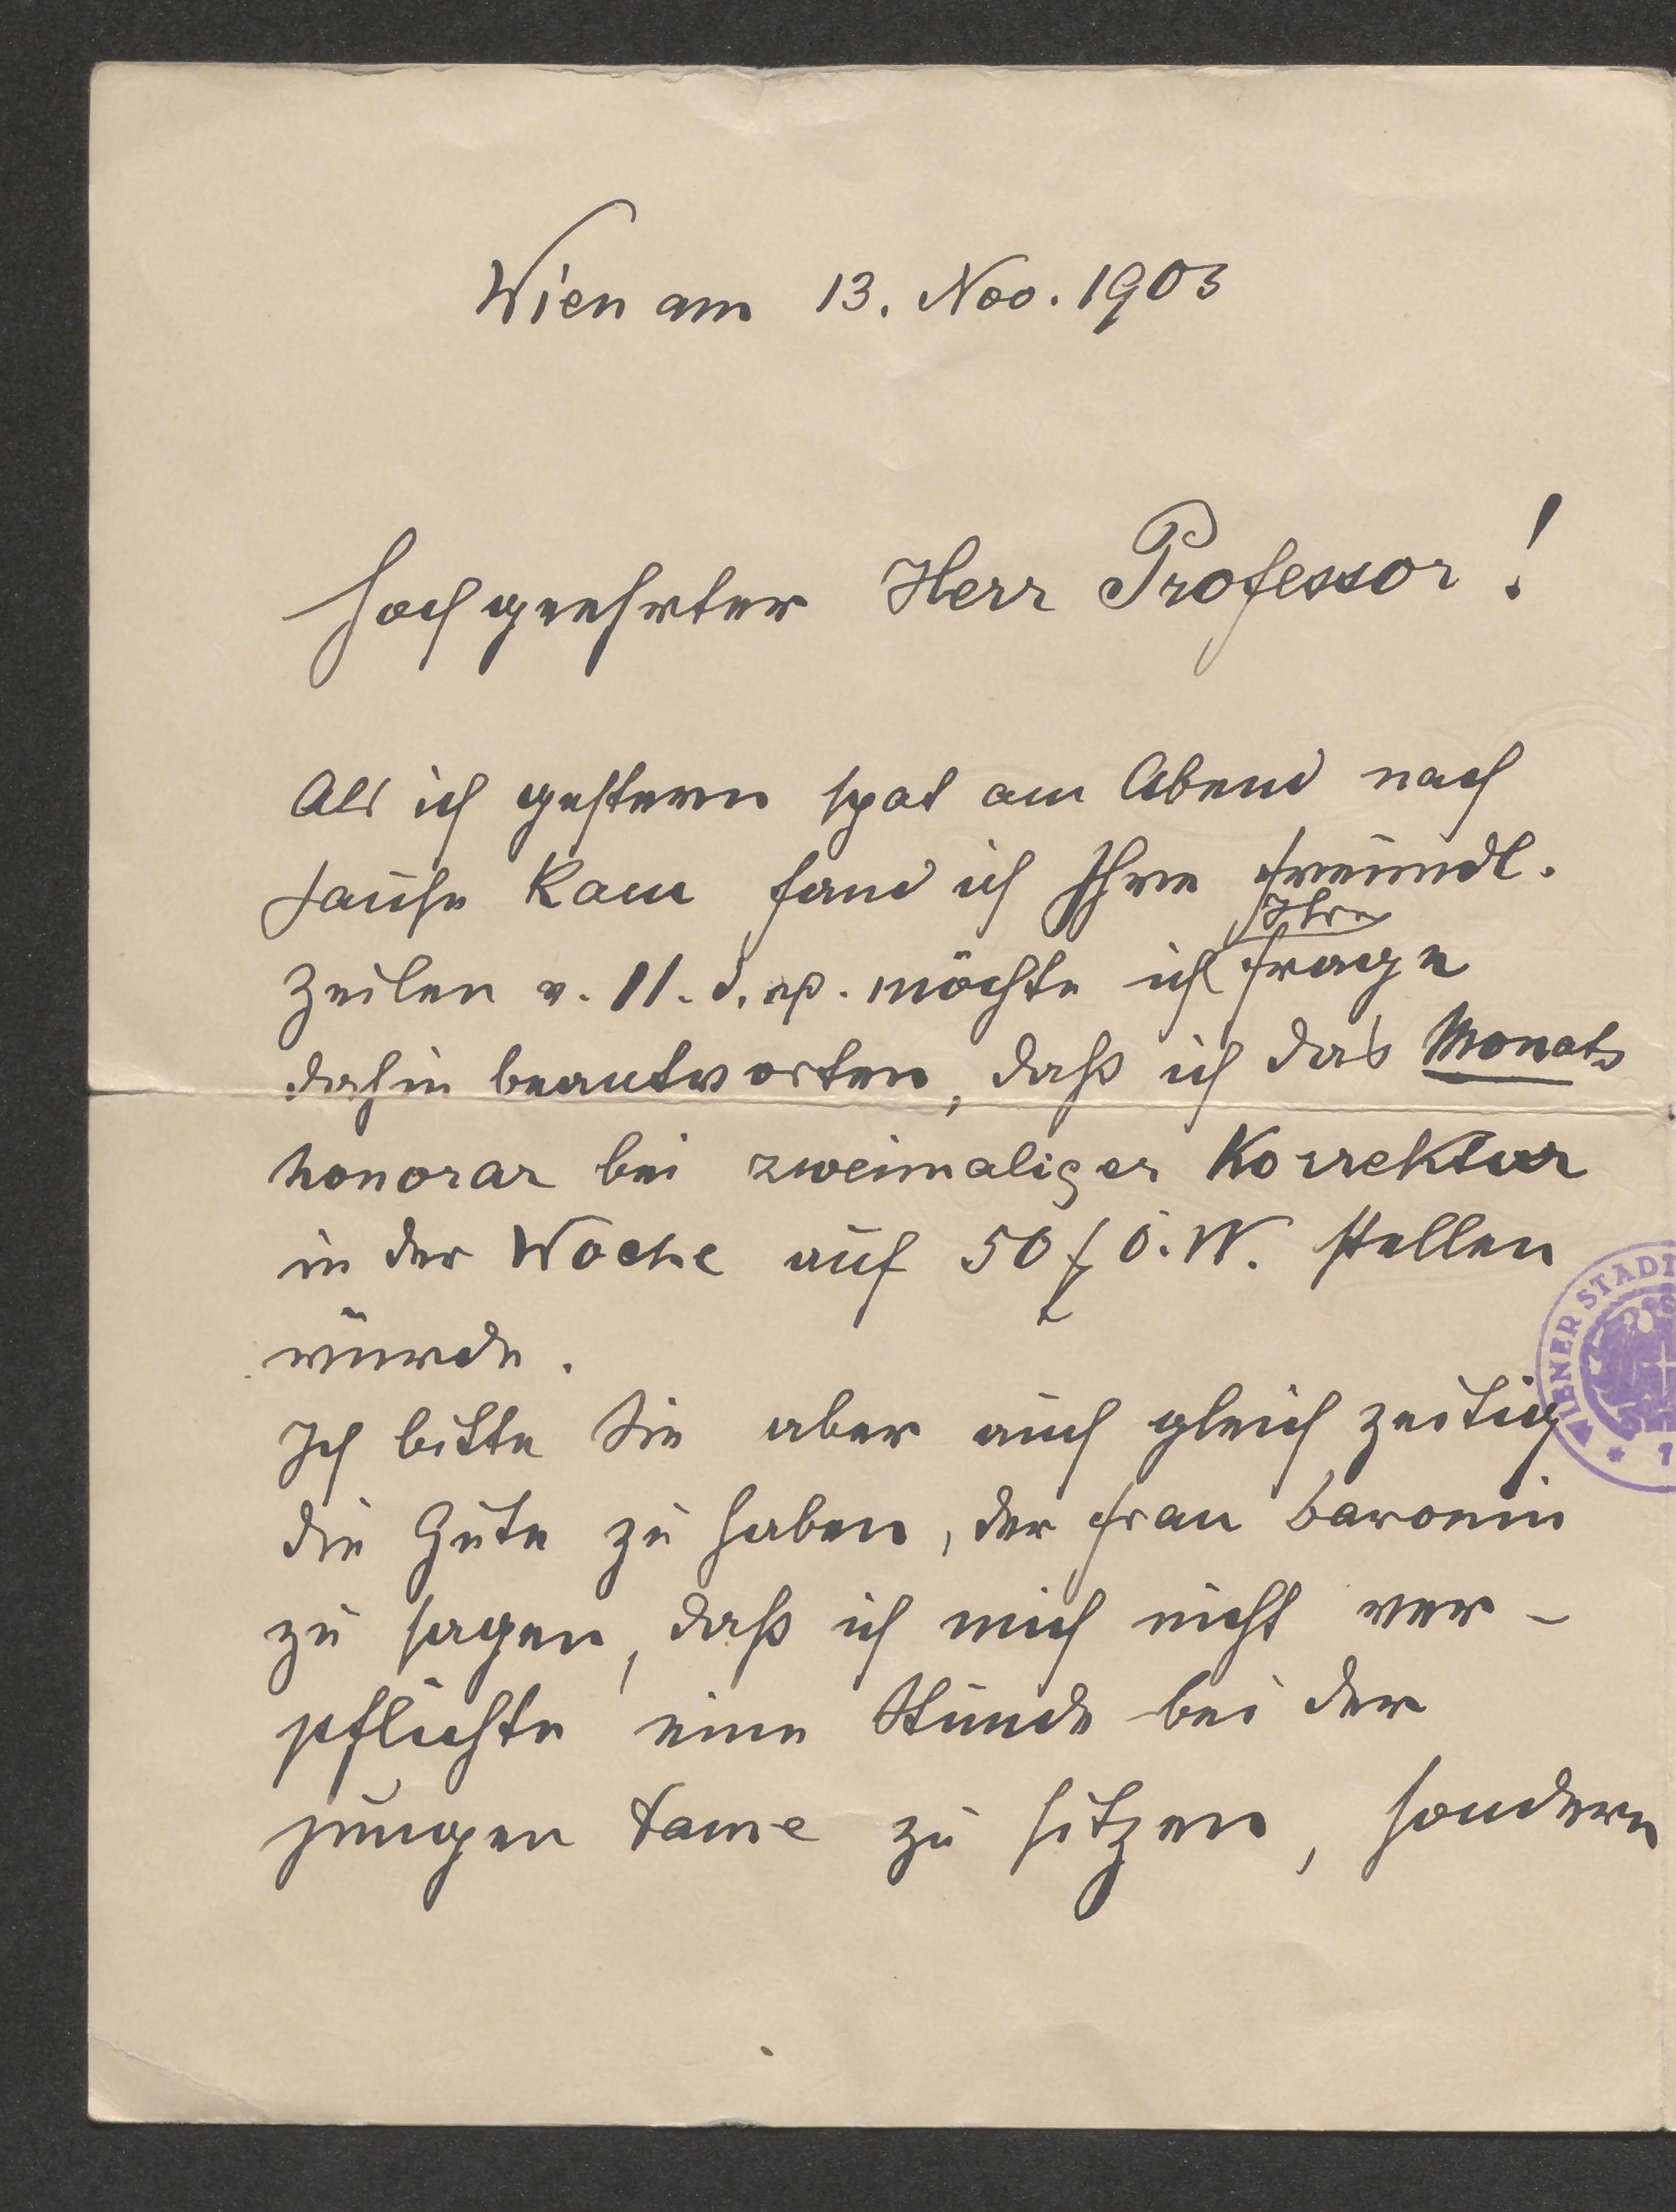 Wien am 13. Nov. 1903
Hochgeehrter Herr Professor!
Als ich gestern spat am Abend nach
Hause kam fand ich Ihre freundl.
Ihre
Zeilen v. 11. d. möchte ich Frage
dahin beantworten, daß ich das Monats
honorar bei zweimaliger Korrektur
in der Woche auf 50 f ö. W. stellen
würde.
Ich bitte Sie aber auch gleich zeitig
die Güte zu haben, der Frau Baronin
zu sagen, daß ich mich nicht ver-
pflichte eine Stunde bei der
jungen Dame zu sitzen, sondern
WIENER STADT
* 1